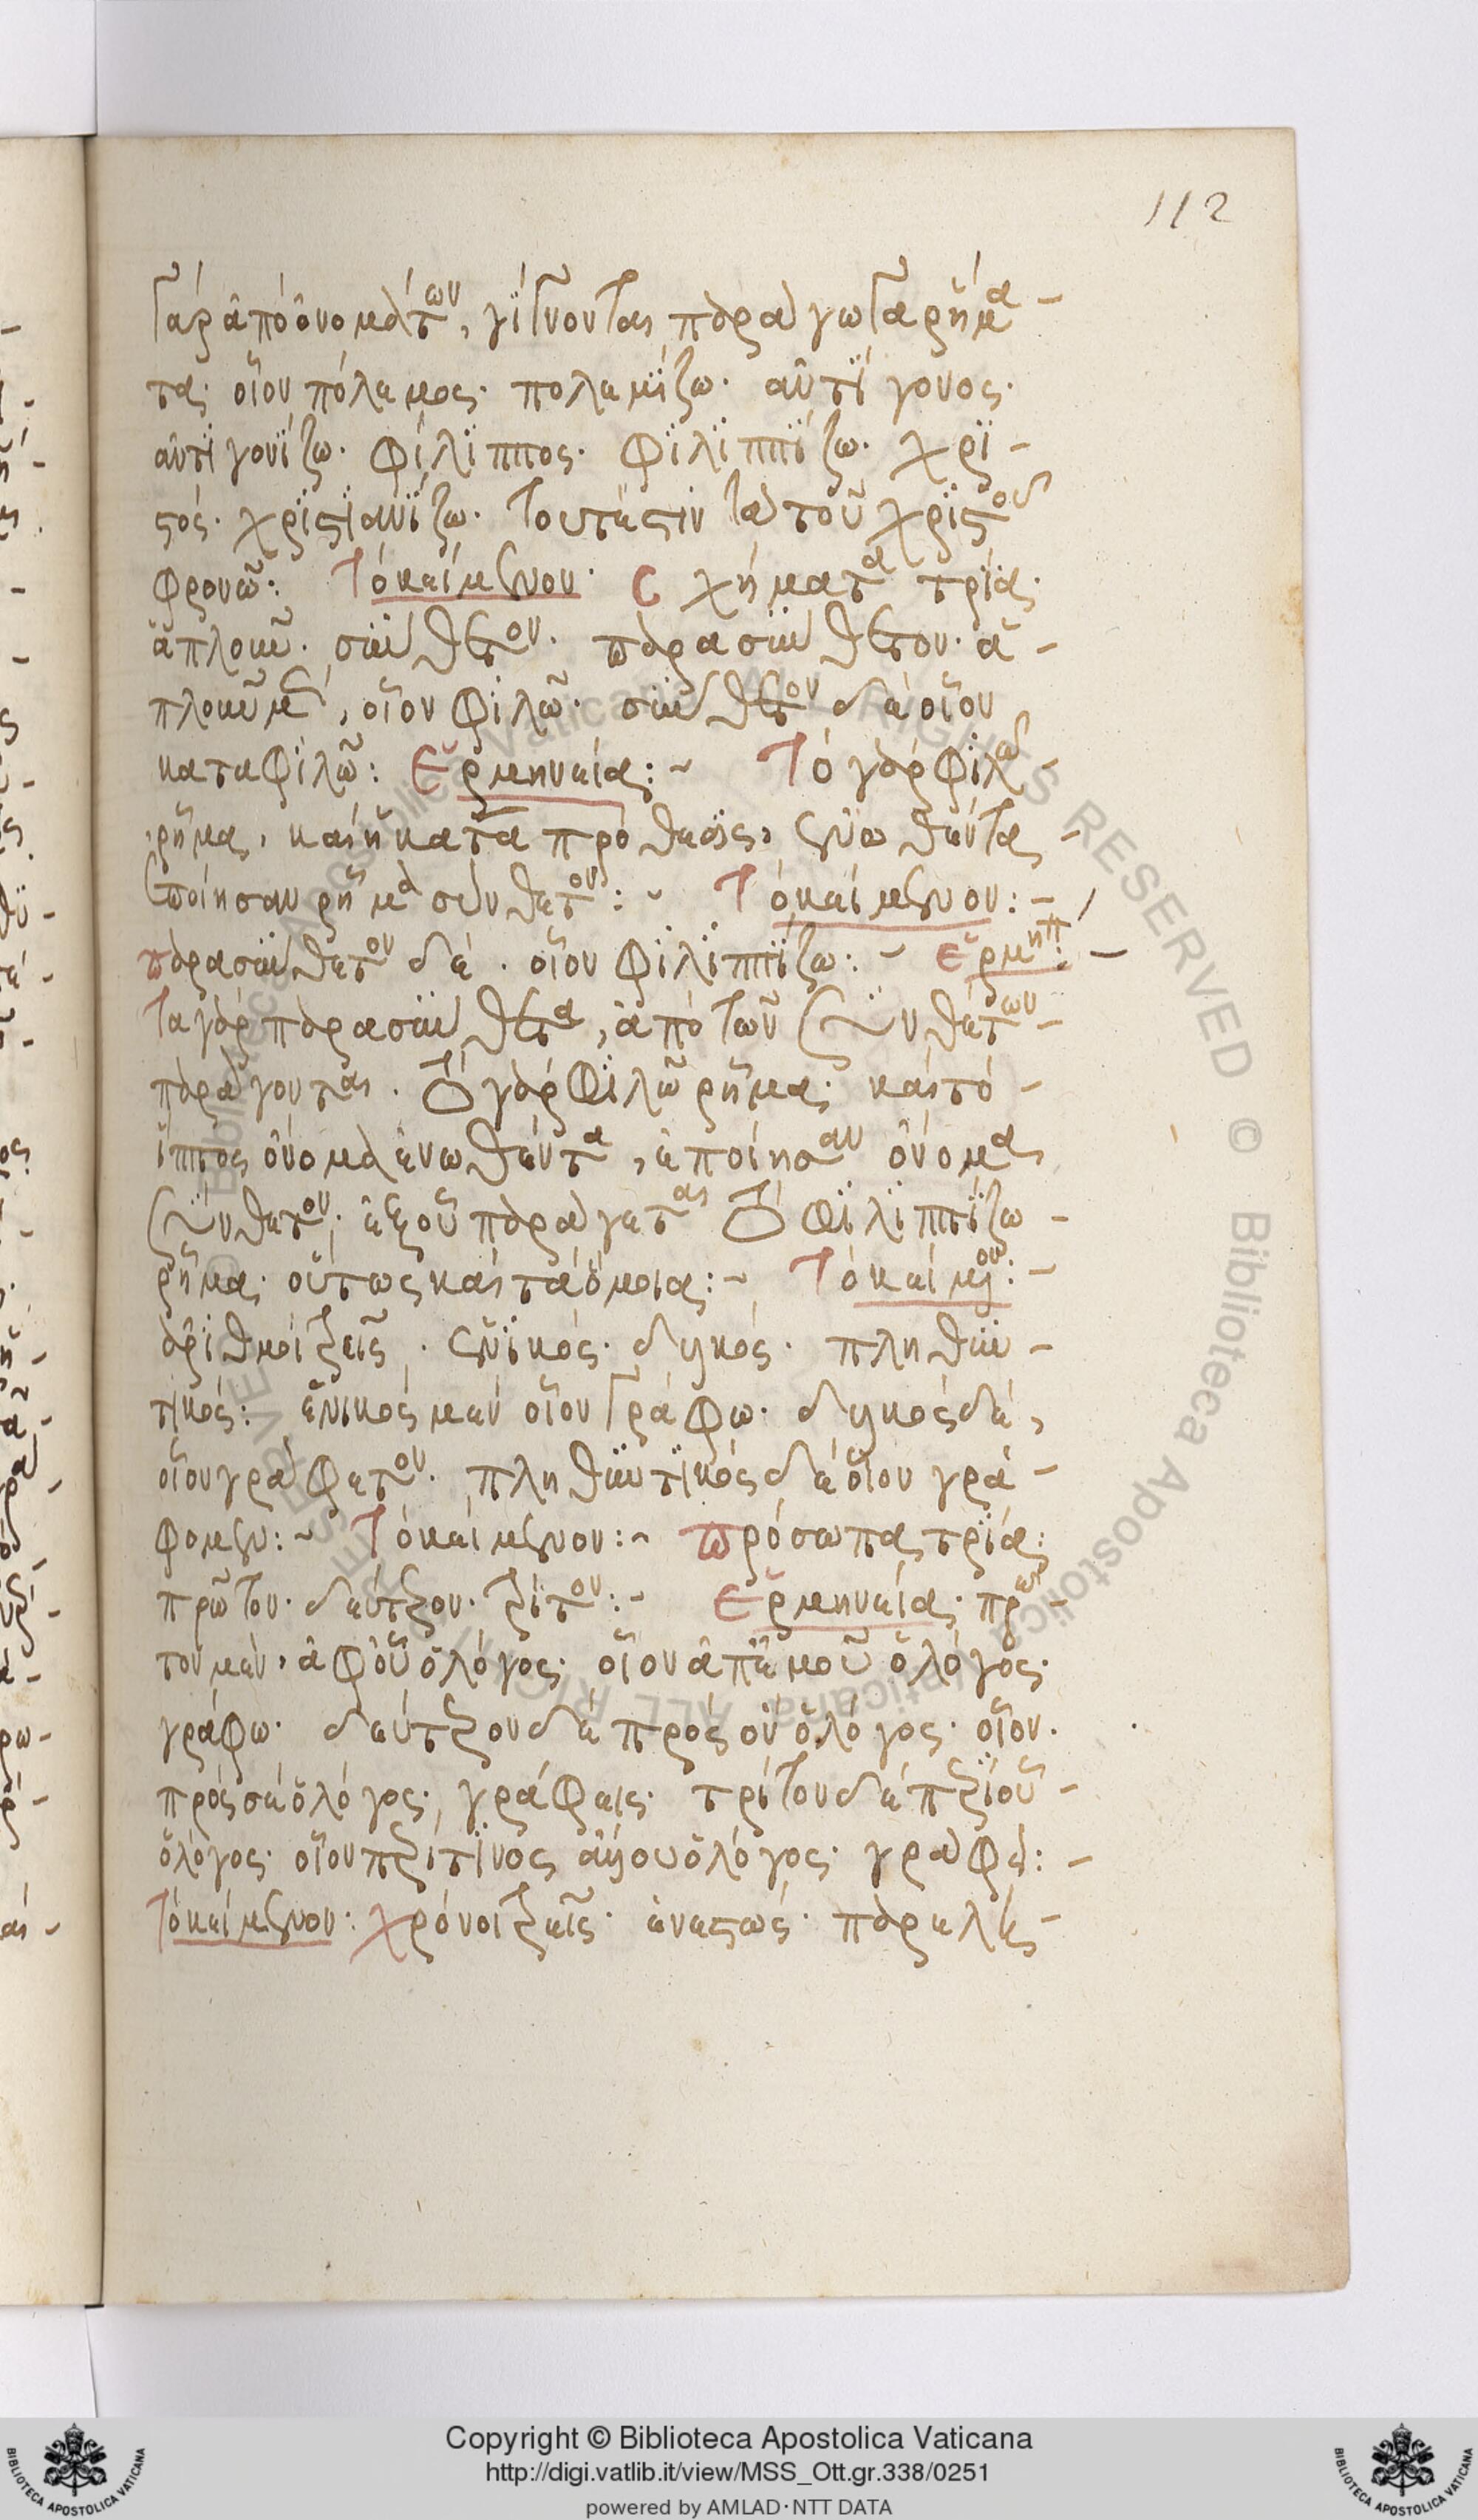 112
γὰρ ἀπὸ ὀνομάτων, γίγνονται παράγωγα ρήμα-
τα· οἷον πόλεμος· πολεμΐζω· ἀντΐγονος·
ἀντιγονΐζω· φΐλϊππος· φϊλϊππΐζω· χρϊ-
στός· χρϊστϊανΐζω· τουτέστιν τὰ τοῦ χρϊστοῦ
φρονῶ: Τὸ κείμενον· Σχήματα τρΐα·
ἁπλοῦν· σύνθετον· παρασύνθετον· ἁ-
πλοῦν μὲν, οἷον φϊλῶ· σύνθετον δὲ οἷον
καταφϊλῶ: Ἑρμηνεία:~ Τὸ γὰρ φϊλῶ-
ρῆμα, καὶ ἡ κατὰ πρόθεσις, ἑνωθέντα-
ἐποίησαν ρῆμα σύνθετον:~ Τὸ κείμενον:-
παρασύνθετον δὲ· οἷον φϊλϊππΐζω:~ ἑρμην:-
Τα γὰρ παρασύνθετα, ἀπὸ τῶν συνθέτων-
παράγονται. Τὸ γὰρ φϊλῶ ρῆμα· καὶ τὸ-
ἵππος ὄνομα ἑνωθέντα, ἐποίησαν ὄνομα
σύνθετον· ἐξ οὗ παράγεται Τὸ φϊλϊππΐζω-
ρῆμα· οὕτως καὶ τὰ ὅμοια:~ Τὸ κείμενον:-
ἀρϊθμοὶ τρεῖς· ἑνϊκός· δυϊκός· πληθυν-
τικός: ἑνικὸς μὲν οἷον γράφω· δυϊκὸς δὲ,
οἷον γράφετον· πληθυντϊκὸς δὲ οἷον γρά-
φομεν:~ Τὸ κείμενον:~ πρόσωπα τρΐα:
πρῶτον· δεύτερον· τρίτον:~ Ἑρμηνεία· πρῶ-
τον μὲν, ἀφ' οὗ ὁ λόγος· οἷον ἀπ' ἐμοῦ ὁ λόγος·
γράφω· δεύτερον δὲ πρὸς ὃν ὁ λόγος· οἷον·
πρὸς σὲ ὁ λόγος, γράφεις· τρίτον δὲ περΐ οὗ-
ὁ λόγος· οἷον περί τϊνος ἄλλου ὁ λόγος· γράφει:-
Τὸ κείμενον: χρόνοι τρεῖς· ἐνεστώς· παρελη-
Copyright © Biblioteca Apostolica Vaticana
http://digi.vatlib.it/view/MSS_Ott.gr.338/0251
powered by AMLAD·NTT DATA